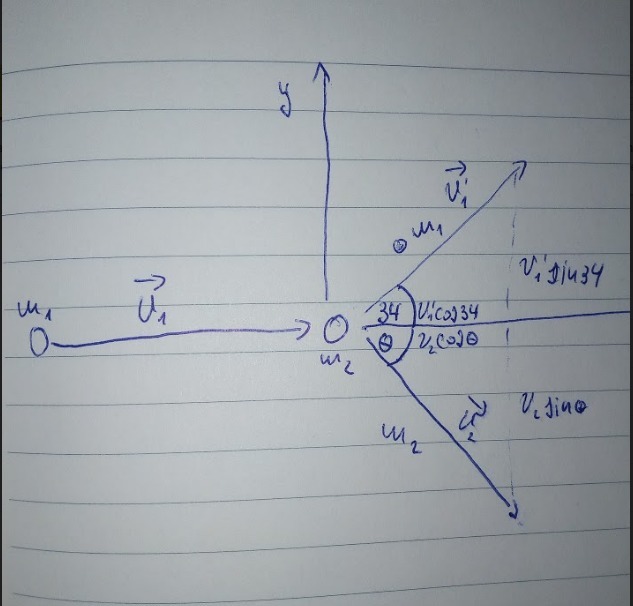 y
v₁' →
m₁
v₁' sin34
m₁
v₁ →
34
v₁'cos34
m₂
θ
v₂cosθ
v₂ →
v₂ sinθ
m₂